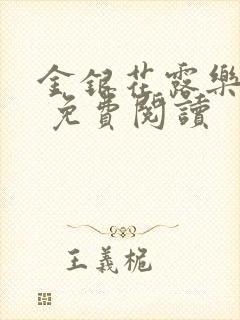 金銀花露樂
免費閱讀
王義桅